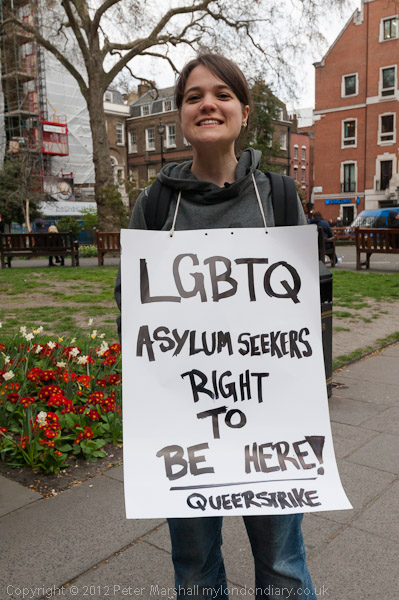 LGBTQ
ASYLUM SEEKERS
RIGHT
TO
BE HERE!
QUEERSTRIKE
Copyright © 2012 Peter Marshall mylondondiary.co.uk